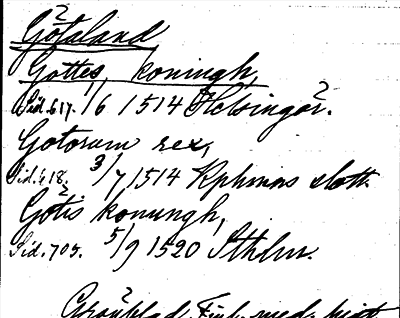 Götaland
Gottes koningh,
Sid. 617. 1/6 1514 Helsingör.
Gotorum rex,
Sid. 618. 3/7 1514 Kphmns slott.
Götis konungh,
Sid. 705. 5/9 1520 Sthlm.